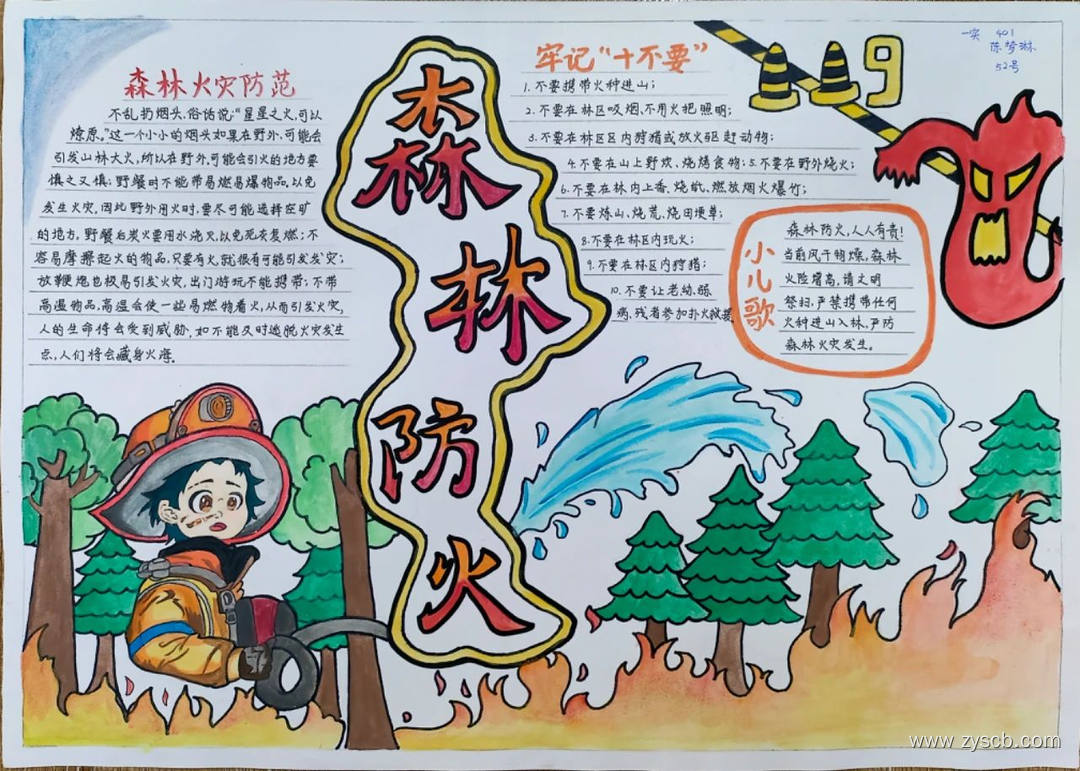 森林火灾防范
不乱扔烟头,俗话说:“星星之火,可以
燎原。”这一个小小的烟头如果在野外,可能会
引发山林大火,所以在野外,可能会引火的地方要
慎之又慎;野餐时不能带易燃易爆物品,以免
发生火灾,因此野外用火时,要尽可能选择在旷
的地方,野餐后炭火要用水浇灭,以免死灰复燃;不
容易摩擦起火的物品,只要有火,就很有可能引发火灾;
放鞭炮也极易引发火灾,出门游玩不能携带;不带
高温物品,高温会使一些易燃物着火,从而引发火灾,
人的生命将会受到威胁,如不能及时逃脱火灾发生
点,人们将会藏身火海。
森林防火
牢记“十不要”
1.不要携带火种进山;
2.不要在林区吸烟、不用火把照明;
3.不要在林区区内狩猎或放火驱赶动物;
4.不要在山上野炊、烧烤食物;5.不要在野外烧火;
6.不要在林内上香、烧纸、燃放烟火爆竹;
7.不要炼山、烧荒、烧田埂草;
8.不要在林区内玩火;
9.不要在林区内狩猎;
10.不要让老、幼、弱
病、残者参加扑火救援
119
一实 401
陈梦琳
52号
小儿歌
森林防火,人人有责!
当前风干物燥,森林
火险增高,请文明
祭扫,严禁携带任何
火种进山入林,严防
森林火灾发生。
www.zyscb.com